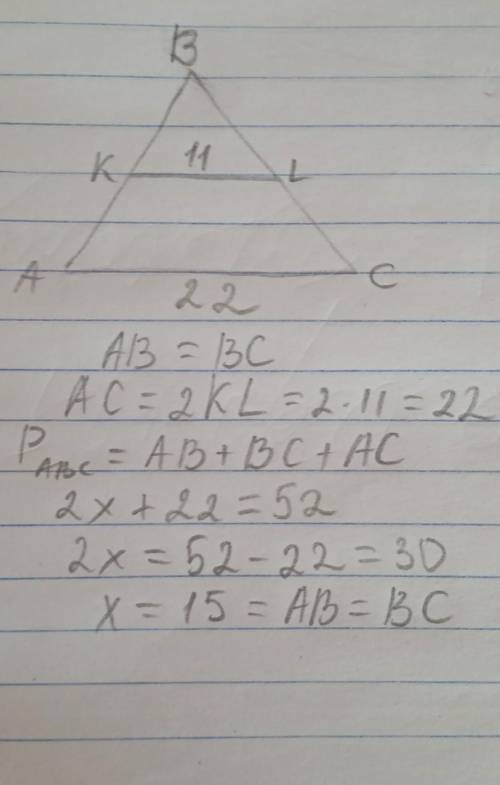 B
K 11 L
A C
22
AB = BC
AC = 2KL = 2·11 = 22
P_ABC = AB + BC + AC
2x + 22 = 52
2x = 52 - 22 = 30
x = 15 = AB = BC